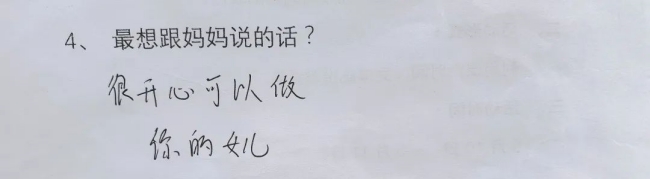 4、 最想跟妈妈说的话？
很开心可以做
你的女儿